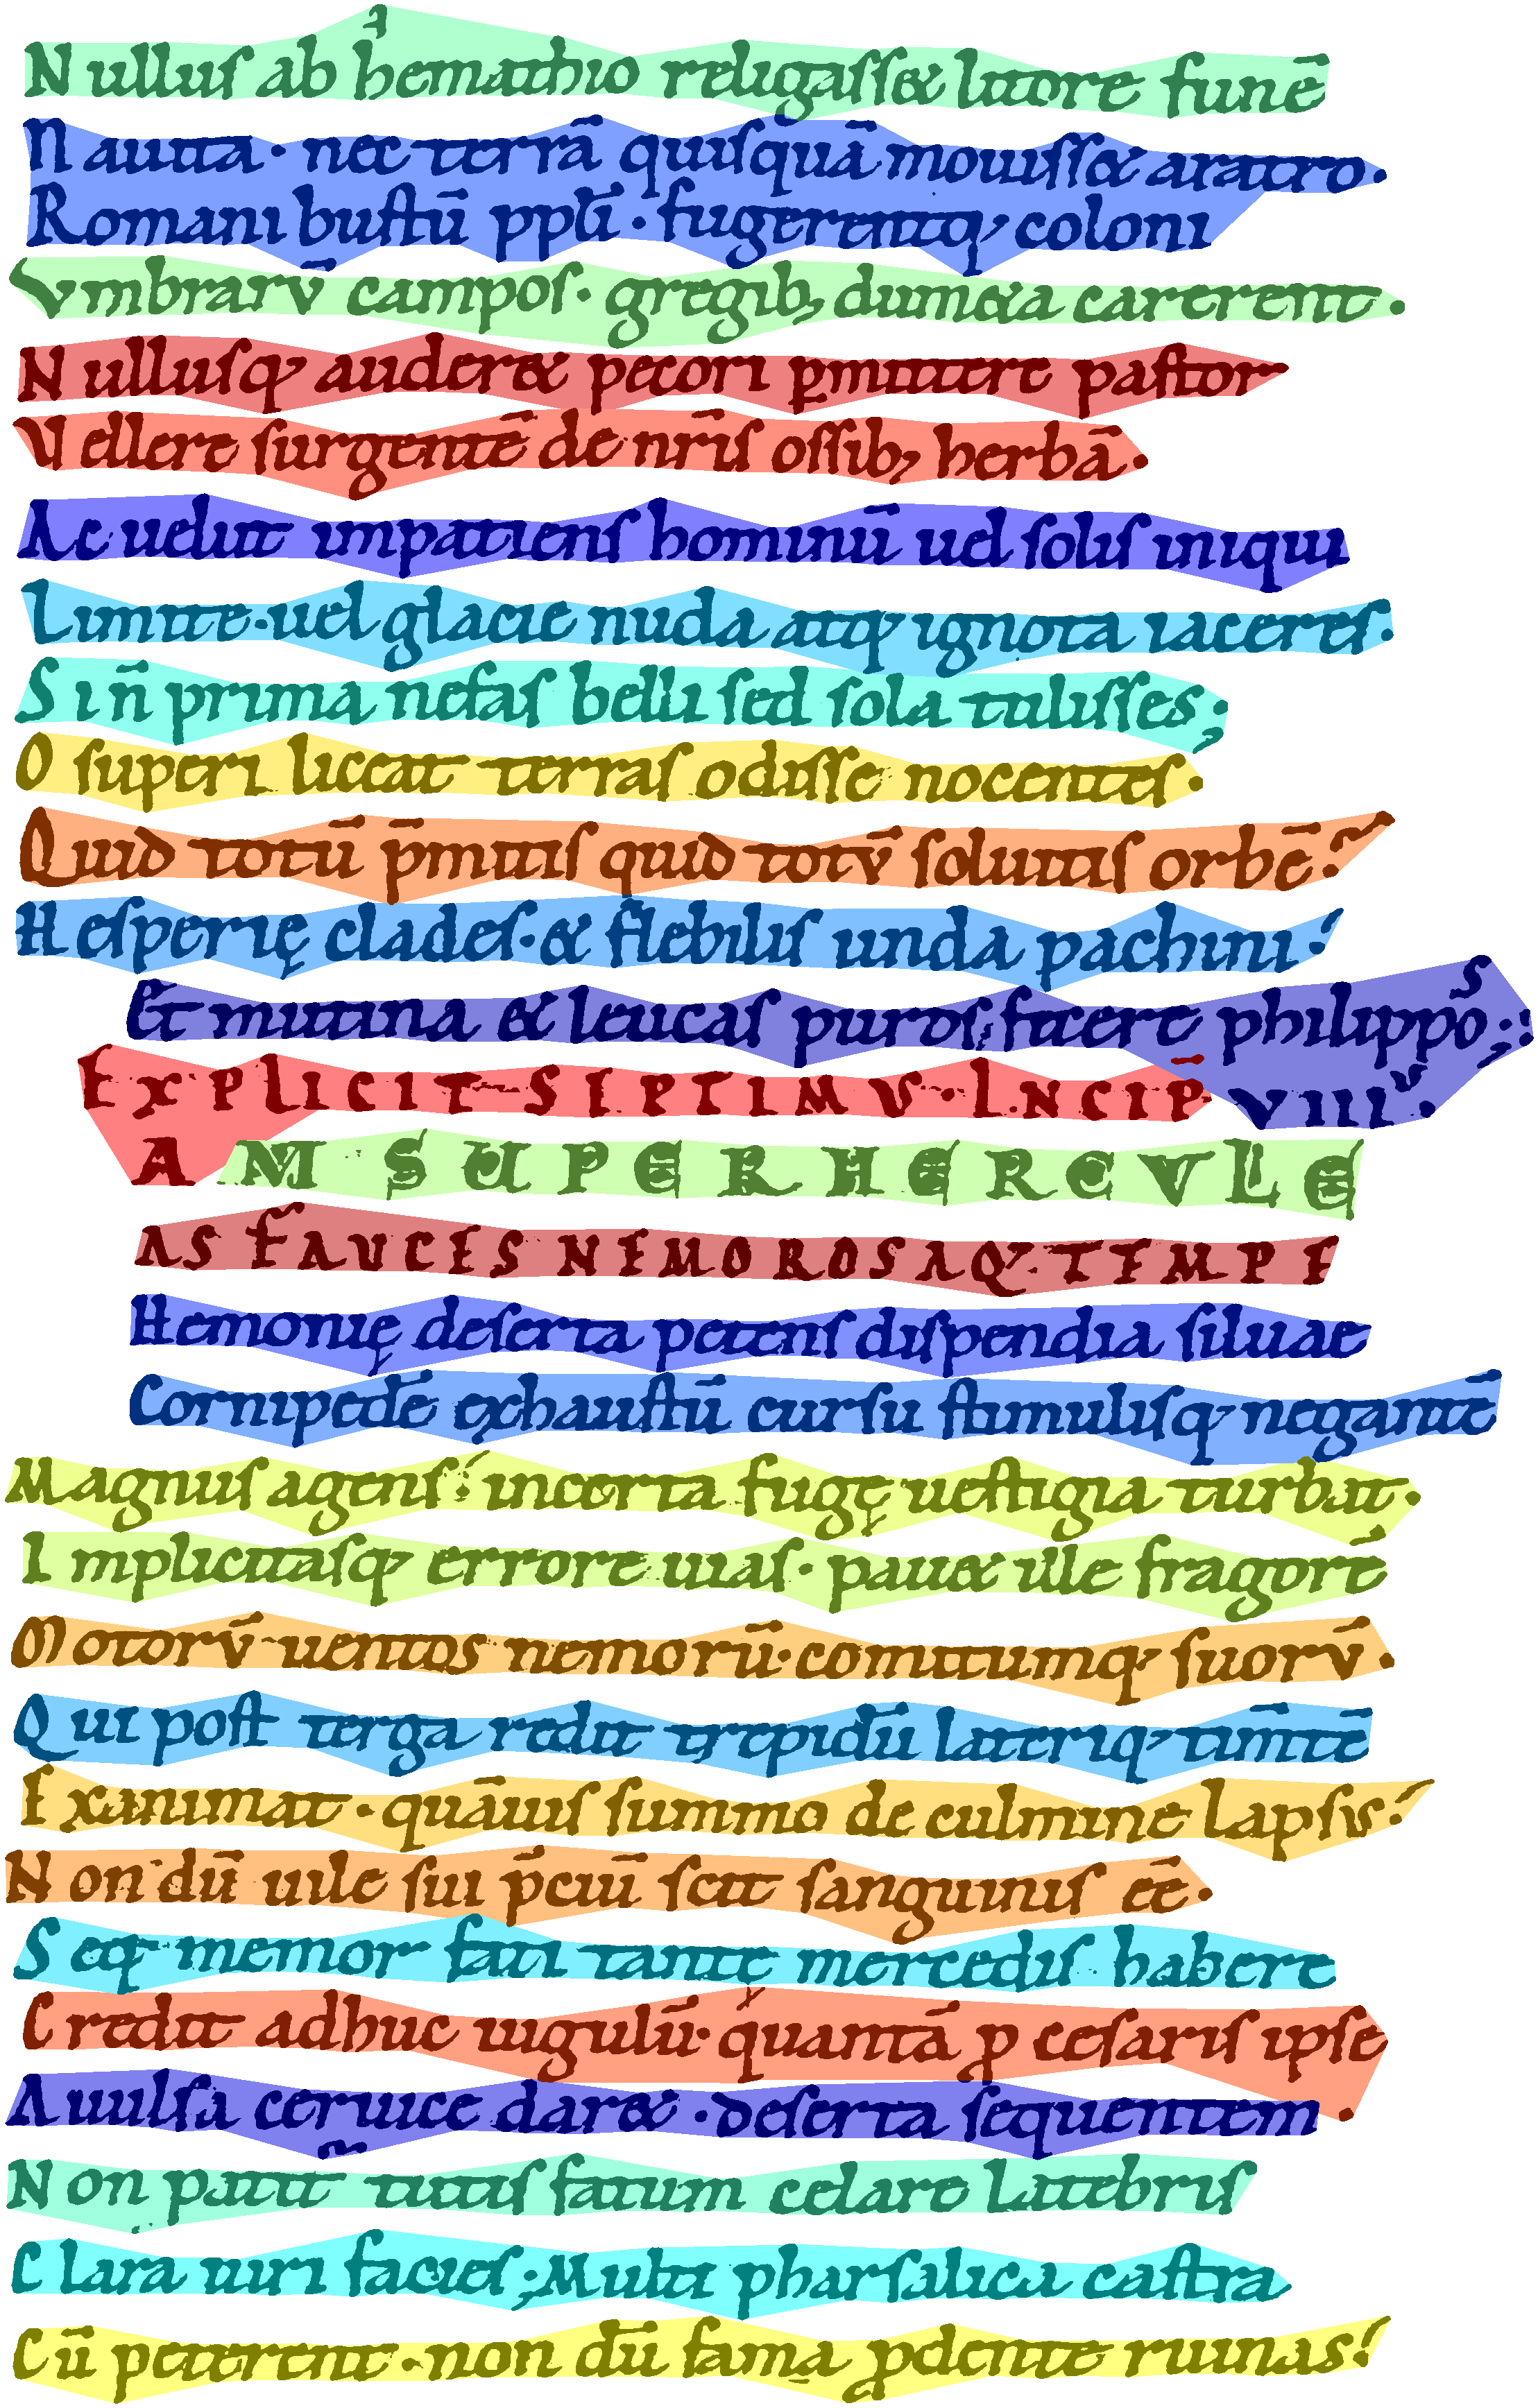 Nullus ab hemathio religasset litore funē
Nauta · nec terrā quisquā mouisset aratro ·
Romani bustū ppli · fugerentq; coloni
Vmbrarū campos · gregib; dumeta carerent ·
Nullusq; auderet pecori pmittere pastor
Vellere surgentē de nrīs ossib; herbā ·
Ac uelut impatiens hominū uel solis iniqui
Limite · uel glacie nuda atq; ignota iaceres ·
Si n̄ prima nefas belli sed sola tulisses ;
O superi liceat terras odisse nocentes ·
Quid totū p̄mitis quid totū soluitis orbē ?
Hesperię clades · & flebilis unda pachini ·
Et mutina & leucas puros ficere philippos ;
Explicit Septimus · Incip̄ VIII ·
AM SUPER HERCVLE
AS FAUCES NEMOROSAQ; TEMPE
Hemonię deserta petens dispendia siluae
Cornipedē exhaustū cursu stimulisq; negantē
Magnus agens · incerta fugę uestigia turbat ·
Implicitasq; errore uias · pauet ille fragorē
Motorū uentos nemorū · comitumq; suorū ·
Qui post terga redit trepidū lateriq; tim̄tē
Exanimat · quāuis summo de culmine lapsus
Non dū uile sui p̄ciū scit sanguinis ēē ·
Seq; memor fati tantę mercedis habere
Credit adhuc iugulū · quantā p cesaris ipse
Auulsa ceruice daret · deserta sequentem ·
Non patit tutis fatum celare latebris
Clara uiri facies ; Multi pharsalica castra
Cū peterent · non dū fama pdente ruinas